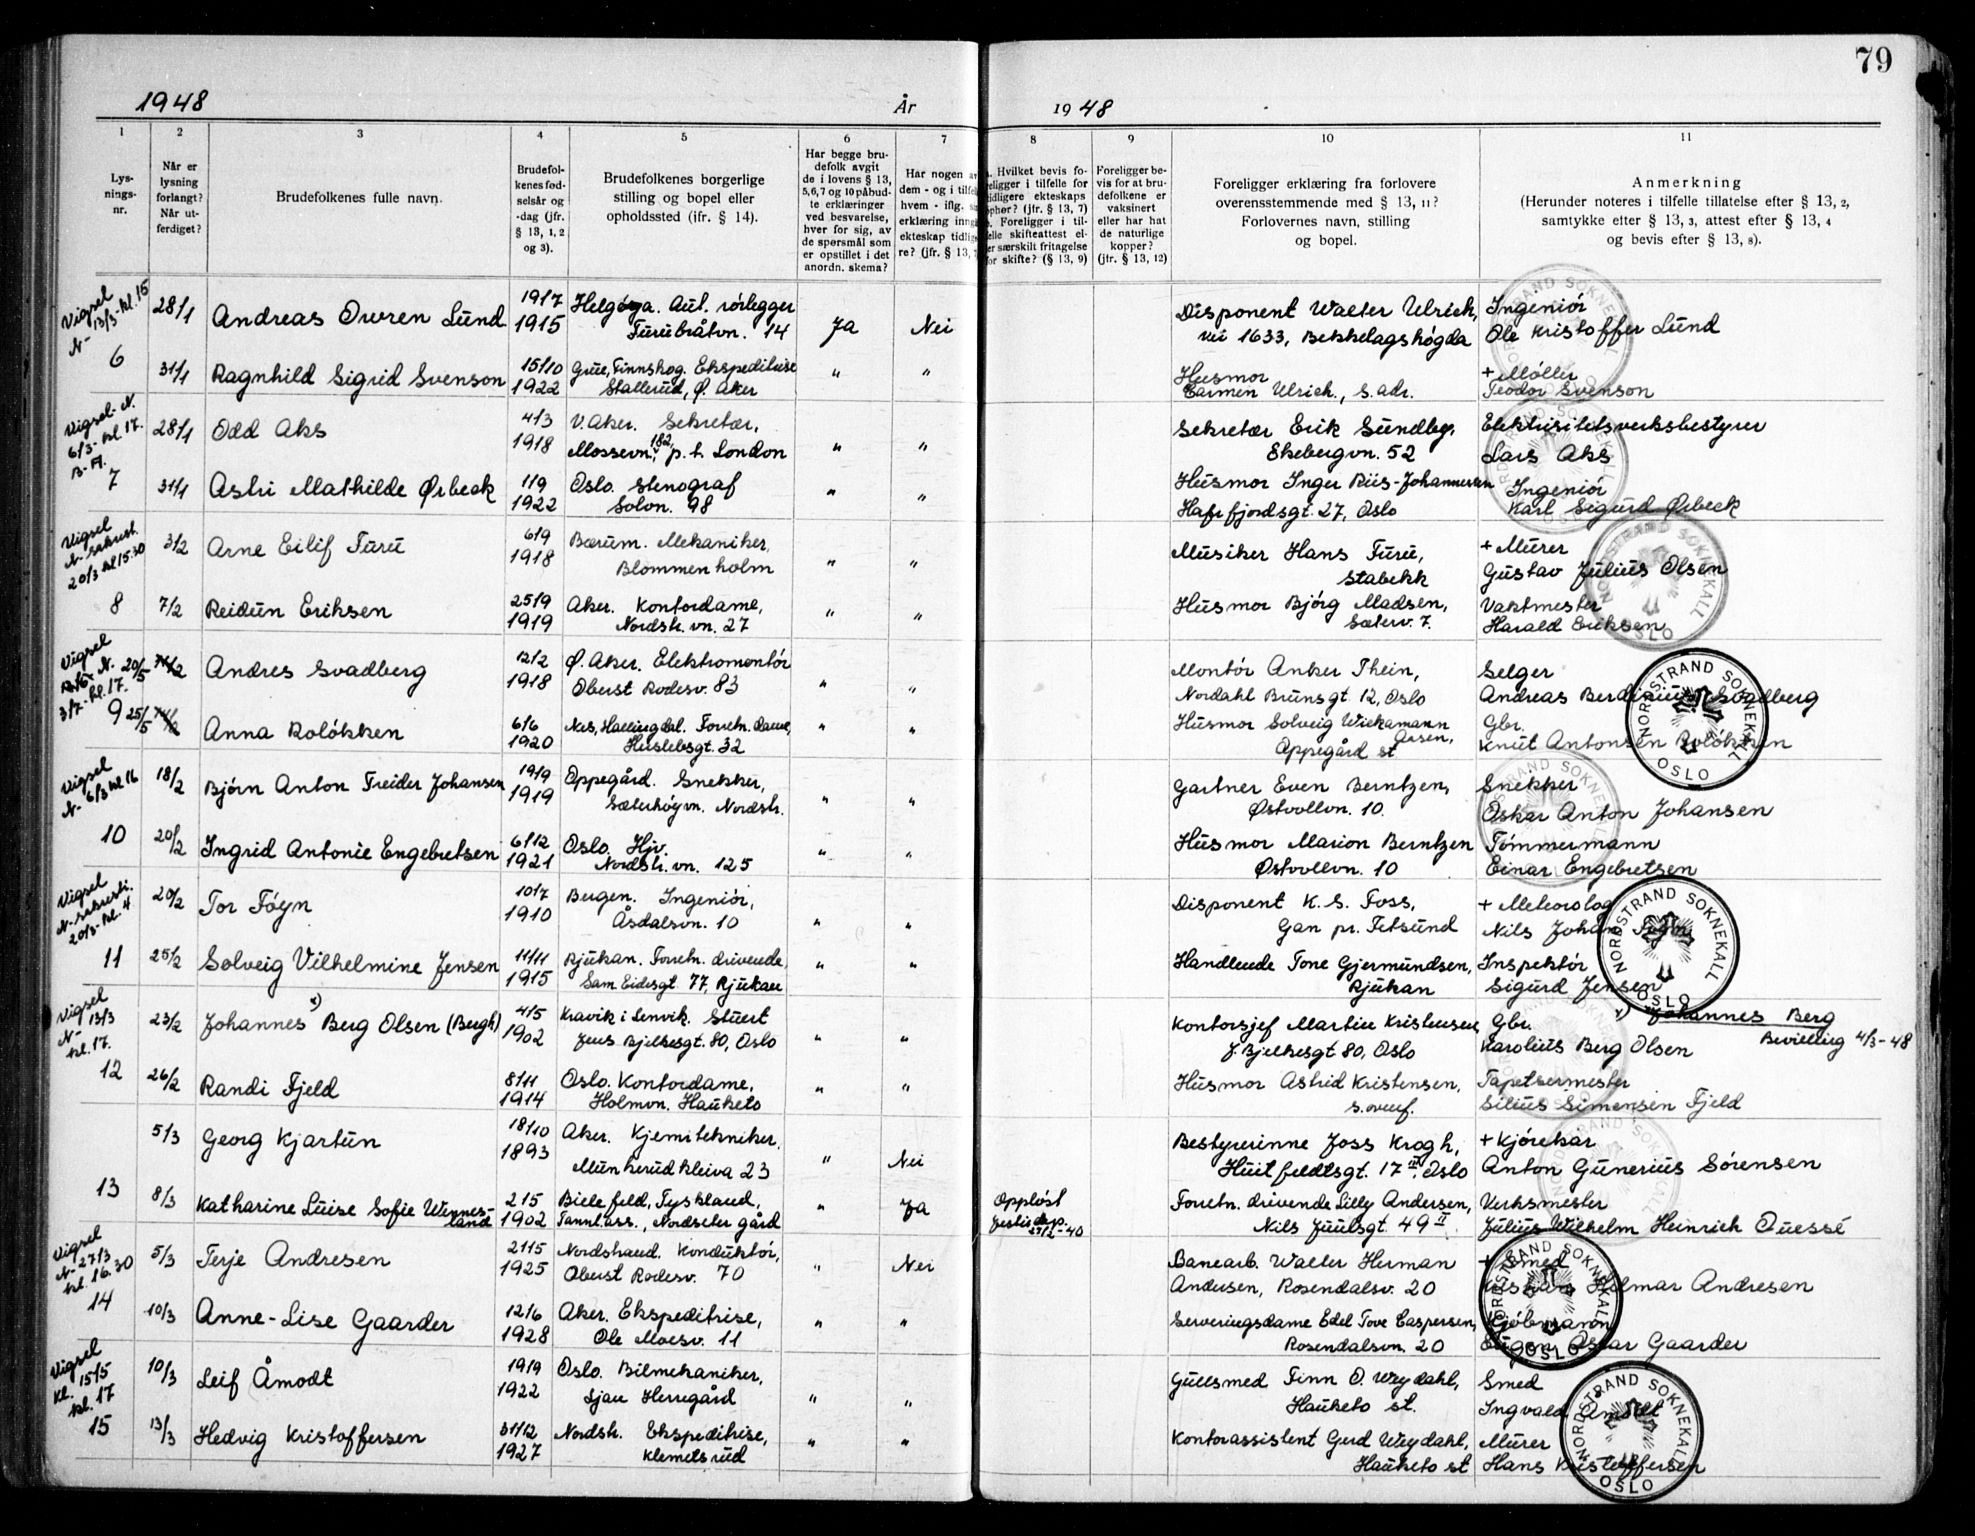 79
1948
År
1948
1
2
3
4
5
6
7
8
9
10
11
Lys-
nings-
nr.
Når er
lysning
forlangt?
Når ut-
ferdiget?
Brudefolkenes fulle navn.
Brudefol-
kenes fød-
selsår og
-dag (jfr.
§ 13, 1, 2
og 3).
Brudefolkenes borgerlige
stilling og bopel eller
opholdssted (ifr. § 14).
Har begge bru-
defolk avgit
de i lovens § 13,
5,6,7 og 10 påbud-
te erklæringer
ved besvarelse,
hver for sig, av
de spørsmål som
er opstillet i det
anordn. skema?
Har nogen av
dem - og i tilfel
hvem - iflg. s
erklæring inng
ekteskap tidlig
re? (jfr. § 13,
Hvilket bevis fo-
religger i tilfelle for
tidligere ekteskaps
ophør? (jfr. § 13, 7)
Foreligger i til-
elle skifteattest el-
er særskilt fritagelse
for skifte? (§ 13, 9)
Foreligger be-
vis for at bru-
defolkene er
vaksinert
eller har hat
de naturlige
kopper?
(jfr. § 13, 12)
Foreligger erklæring fra forlovere
overensstemmende med § 13, 11?
Forlovernes navn, stilling
og bopel.
Anmerkning
(Herunder noteres i tilfelle tillatelse efter § 13, 2,
samtykke efter § 13, 3, attest efter § 13, 4
og bevis efter § 13, 8).
Vigsel
N- 13/3-kl. 15
6
28/1
Andreas Owren Lund
1917
1915
Helgøya. Aut. rørlegger
Furubråtvn. 14
Ja
Nei
Disponent Walter Ulrich,
vei 1633, Bekkelagshøgda
Ingeniør
Ole Kristoffer Lund
31/1
Ragnhild Sigrid Svenson
15/10
1922
Grue, Finnskog. Ekspeditrise
Stallerud, Ø. Aker
"
"
Husmor
Carmen Ulrich, s. adr.
+ Møller
Teodor Svenson
Vigsel-N.
6/3- kl. 17.
7
28/1
Odd Aks
4/3
1918
V. Aker. Sekretær,
Mossevn. 182, p.t. London
"
"
Sekretær Erik Sundby,
Ekebergvn. 52
Elektrisitetsverksbestyrer
Lars Aks
31/1
Astri Mathilde Ørbeck
1/9
1922
Oslo. Stenograf
Solvn. 98
"
"
Husmor Inger Riis-Johannessen
Hafrfjordsgt. 27, Oslo
Ingeniør
Karl Sigurd Ørbeck
Vigsel
N- sakrist.
20/3 kl 15.30
8
3/2
Arne Eilif Furu
6/9
1918
Bærum. Mekaniker,
Blommenholm
"
"
Musiker Hans Furu,
Stabekk
+ Murer
Gustav Julius Olsen
7/2
Reidun Eriksen
25/9
1919
Aker. Kontordame,
Nordstr. vn. 27
"
"
Husmor Bjørg Madsen,
Sæterv. 7.
Vaktmester
Harald Eriksen
Vigsel
N.
3/7- kl. 17.
9
20/5
Andres Svadberg
12/2
1918
Ø. Aker. Elektromontør
Oberst Rodesv. 83
"
"
Montør Anker Thein,
Nordahl Brunsgt. 12, Oslo
Selger
Andreas Berdinius Svadberg
25/5
Anna Roløkken
6/6
1920
Nes, Hallingdal. Forretn. dame,
Huslebsgt. 32
"
"
Husmor Solveig
Oppegård st
Gbr.
Knut Antonsen Roløkken
Vigsel
N- 6/3 kl 16
10
18/2
Bjørn Anton Freider Johansen
19/9
1919
Oppegård. Snekker,
Sæterhøgvn. Nordstr.
"
"
Gartner Even Berntzen,
Østvollvn. 10.
Snekker
Oskar Anton Johansen
20/2
Ingrid Antonie Engebretsen
6/12
1921
Oslo. Hjv.
Nordstr. vn. 125
"
"
Husmor Marion Berntzen
Østvollvn. 10
Tømmermann
Einar Engebretsen
Vigsel
N- sakristi.
20/3- kl. 4
11
20/2
Tor Føyn
10/7
1910
Bergen. Ingeniør,
Åsdalsvn. 10
"
"
Disponent K. S. Foss,
Gan pr. Fetsund
+ Meteorolog
Nils Johan Føyn
25/2
Solveig Vilhelmine Jensen
11/11
1915
Rjukan. Forretn. drivende,
Sam Eidesgt 77, Rjukan
"
"
Handlende Tone Gjermundsen,
Rjukan
Inspektør
Sigurd Jensen
Vigsel
N- 13/3
kl. 17.
12
23/2
Johannes x) Berg Olsen (Bergh)
4/5
1902
Kravik i Lenvik. Stuert
Jens Bjelkesgt. 80, Oslo
"
"
Kontorsjef Martin Kristensen,
J. Bjelkesgt 80, Oslo
Gbr.
Karolius Berg Olsen
x) Johannes Berg
Bevilling 4/3-48
26/2
Randi Fjeld
8/11
1914
Oslo. Kontordame,
Holmvn. Hauketo
"
"
Husmor Astrid Kristensen,
s. ovenf.
Tapetsermester
Silius Simensen Fjeld
13
5/3
Georg Kjartun
18/10
1893
Aker. Kjemitekniker,
Munkerudkleiva 23
"
Nei
Bestyrerinne Joss Krogh,
Huitfeldtsgt. 17 III, Oslo
+ Kjørekar
Anton Gunerius Sørensen
8/3
Katharine Luise Sofie Wennes-
land
2/5
1902
Bielefeld, Tyskland,
Tannl. ass., Nordseter gård
"
Ja
Oppløst
23/2-40
Forretn. drivende Lilly Andersen,
Nils Juulsgt. 49 II
Verksmester
Julius Wilhelm Heinrich Quessé
Vigsel
N- 27/3
kl. 16.30
14
5/3
Terje Andresen
21/5
1925
Nordstrand. Konduktør,
Oberst Rodesv. 70
"
Nei
Banearb. Walter Herman
Andersen, Rosendalsv. 20
+ Smed
Hilmar Andresen
10/3
Anne-Lise Gaarder
12/6
1928
Aker. Ekspeditrise,
Ole Moesv. 11
"
"
Serveringsdame Edel Tove Caspersen,
Rosendalsvn. 20
Eugen Oskar Gaarder
Vigsel
Kl. 15/5
kl. 17
15
10/3
Leif Åmodt
19/9
1922
Oslo. Bilmekaniker,
Ljan Herregård
"
"
Gullsmed Finn O. Weydahl,
Hauketo st.
Smed
Ingvald Åmodt
13/3
Hedvig Kristoffersen
31/12
1927
Nordstr. Ekspeditrise,
Klemetsrud
"
"
Kontorassistent Gerd Weydahl,
Hauketo st
Murer
Hans Kristoffersen
NORDSTRAND SOKNEKALL
OSLO
NORDSTRAND SOKNEKALL
OSLO
NORDSTRAND SOKNEKALL
OSLO
NORDSTRAND SOKNEKALL
OSLO
NORDSTRAND SOKNEKALL
OSLO
NORDSTRAND SOKNEKALL
OSLO
NORDSTRAND SOKNEKALL
OSLO
NORDSTRAND SOKNEKALL
OSLO